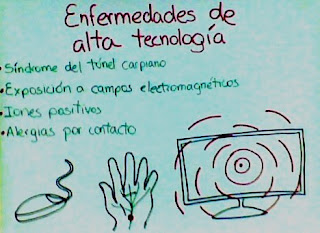 Enfermedades de
alta tecnología
• Síndrome del túnel carpiano
• Exposición a campos electromagnéticos
• Iones positivos
• Alergias por contacto